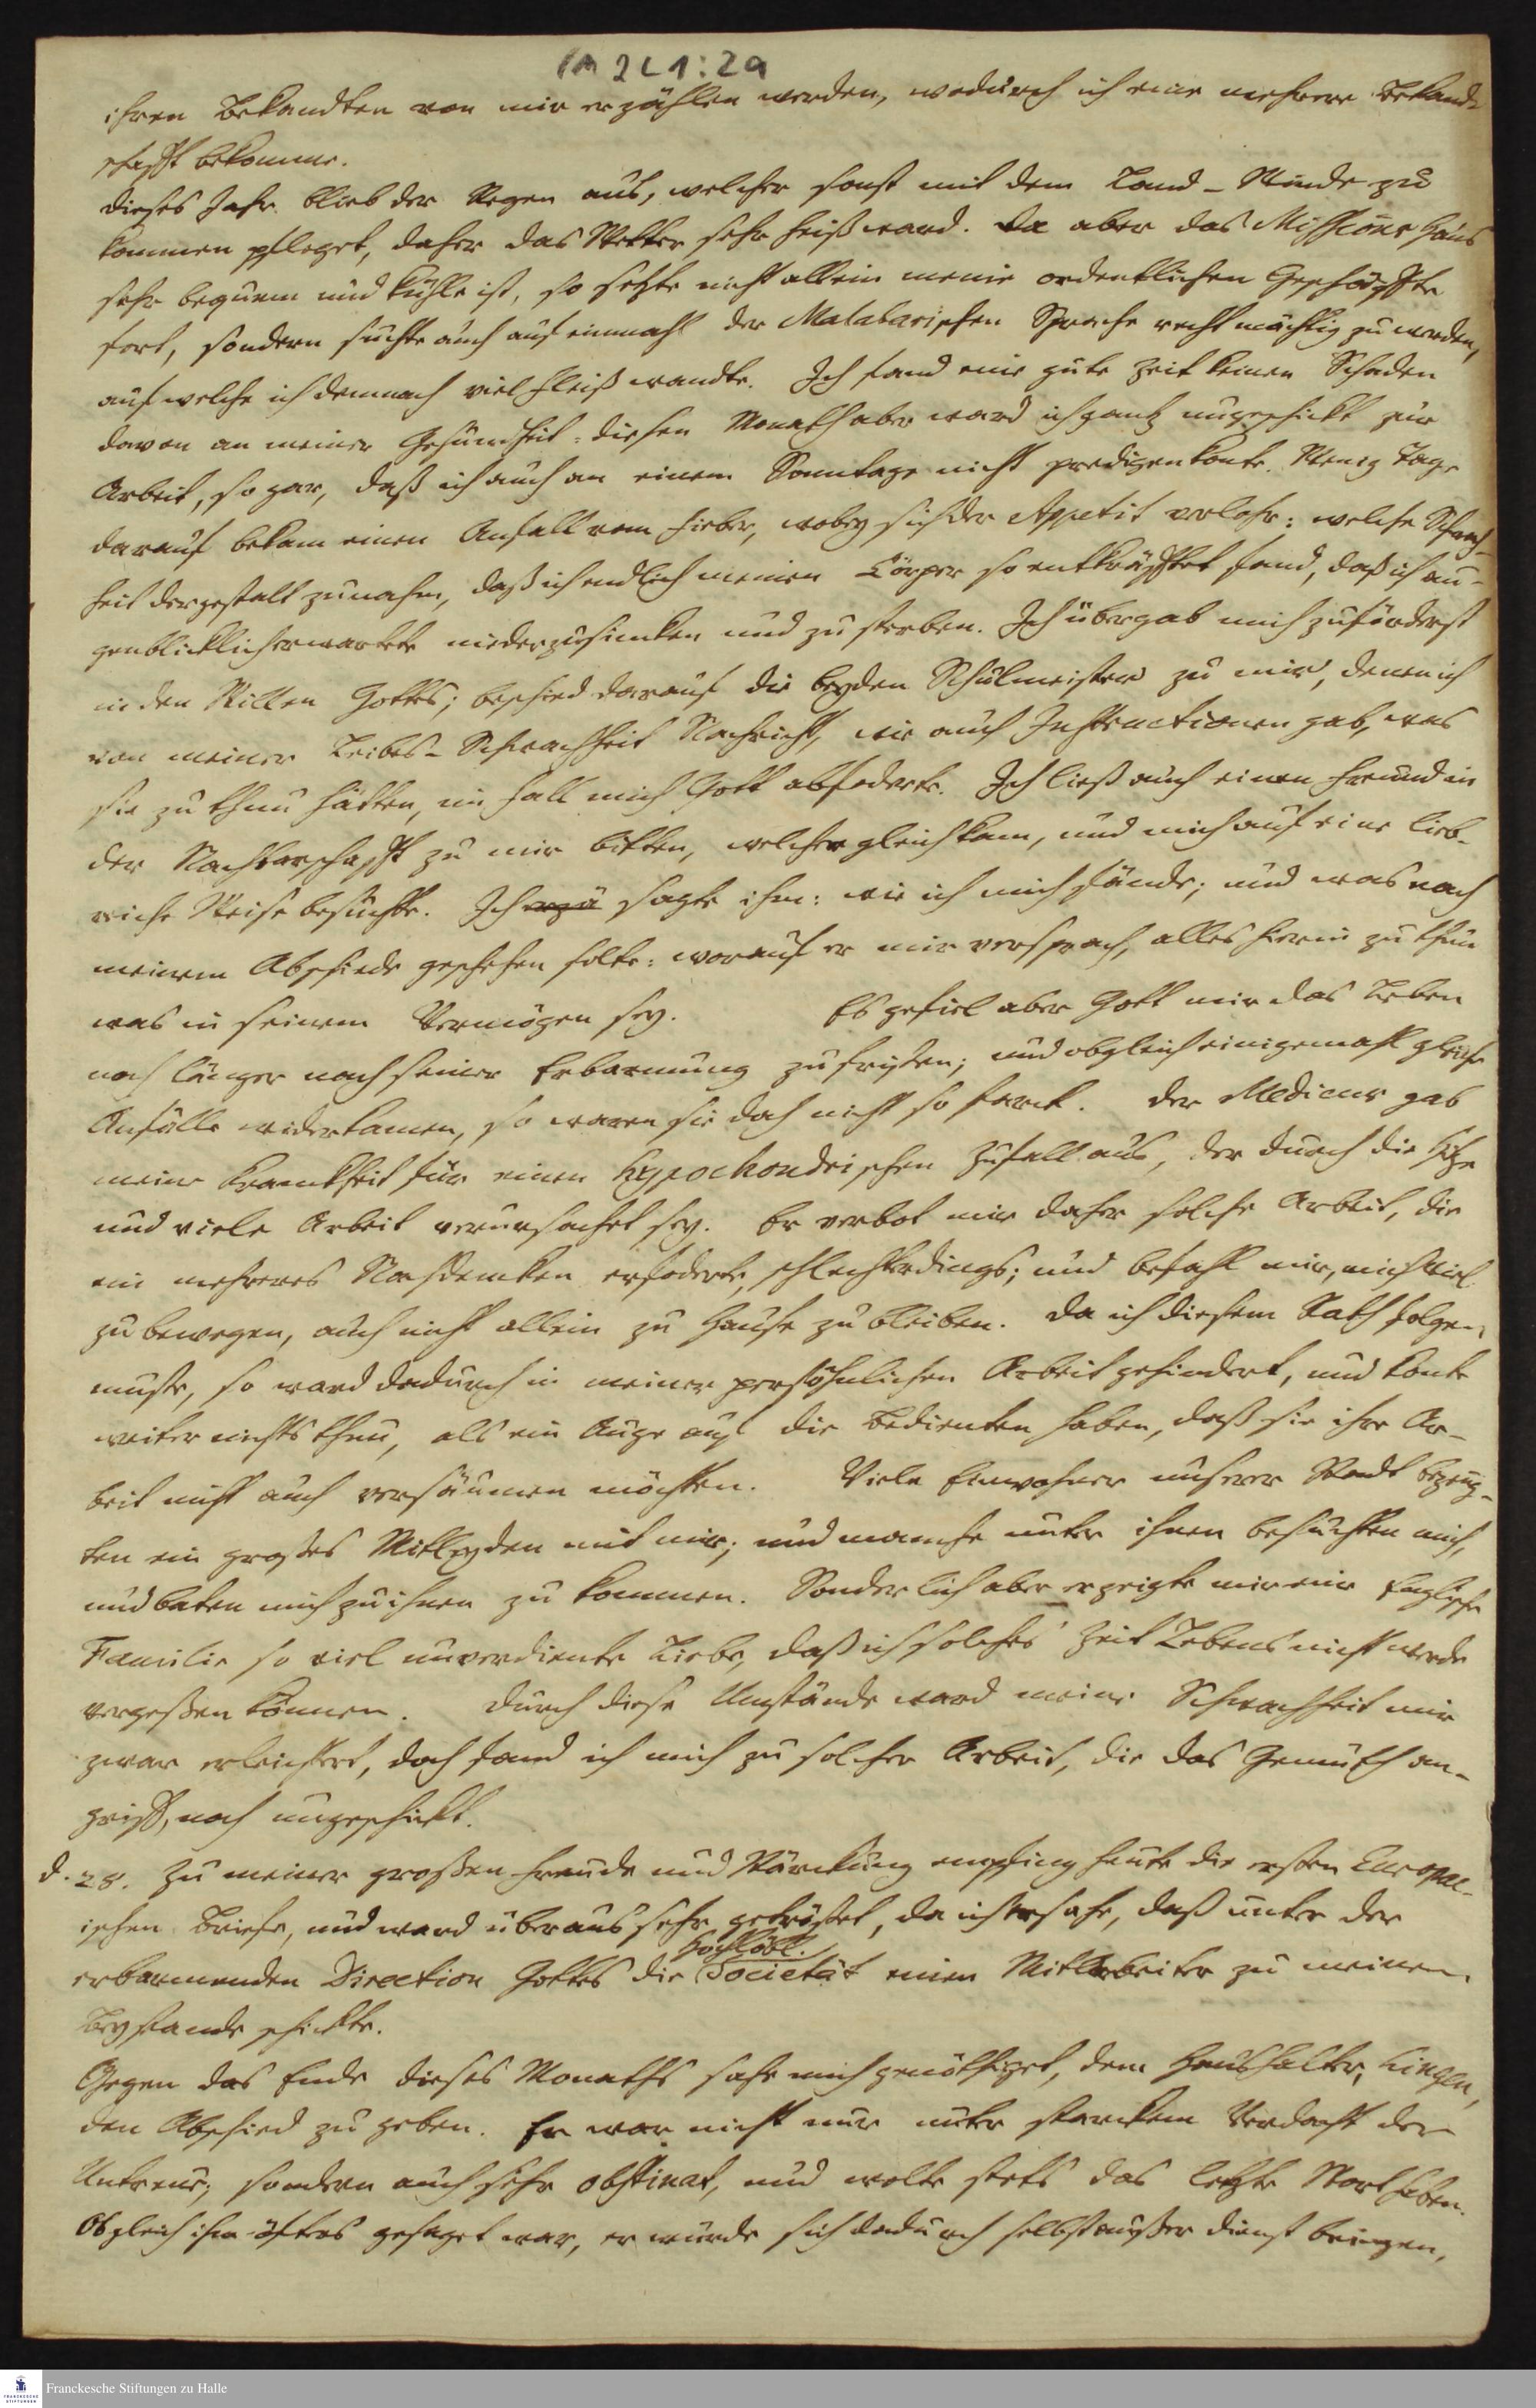 1M 2 L 1:29
ihren Bekandten von mir erzählen werden, wodurch ich eine mehrere Bekand-
schafft bekomme.
Dieses Jahr blieb der Regen aus, welcher sonst mit dem Land-Winde zu
kommen pfleget, daher das Wetter sehr heiß ward. Da aber das Missions Haus
sehr bequem und kühle ist, so setzte nicht allein meine ordentlichen Geschäffte
fort, sondern suchte auch auf einmahl der Malabarischen Sprache recht mächtig zu werden,
auf welche ich demnach viel Fleiß wandte. Ich fand eine gute Zeit keinen Schaden
davon an meiner Gesundheit: diesen Monath aber ward ich gantz ungeschickt zur
Arbeit, so gar, daß ich auch an einem Sonntage nicht predigen konte. Wenig Tage
darauf bekam einen Anfall vom Fieber, wobey sich der Appetit verlohr: welche Schwach-
heit dergestalt zunahm, daß ich endlich meinen Cörper so entkräfftet fand, daß ich au-
genblicklich erwartete niederzusincken und zu sterben. Ich übergab mich zuförderst
in den Willen Gottes; beschied darauf die beyden Schulmeister zu mir, denen ich
von meiner Leibes-Schwachheit Nachricht, wie auch Instructionen gab, was
sie zu thun hätten, im Fall mich Gott abfoderte. Ich ließ auch einen Freund in
der Nachbarschafft zu mir bitten, welcher gleich kam, und mich auf eine lieb-
reiche Weise besuchte. Ich erzä sagte ihm: wie ich mich fände; und was nach
meinem Abschiede geschehen solte: worauf er mir versprach, alles hierin zu thun
was in seinem Vermögen sey. Es gefiel aber Gott mir das Leben
noch länger nach seiner Erbarmung zu fristen; und obgleich einigemahl gleiche
Anfälle widerkamen, so waren sie doch nicht so starck. Der Medicus gab
meine Kranckheit für einen Hypochondrischen Zufall aus, der durch die Hitze
und viele Arbeit verursachet sey. Er verbot mir daher solche Arbeit, die
ein mehreres Nachdencken erfoderte, schlechterdings; und befahl mir, mich viel
zu bewegen, auch nicht allein zu Hause zu bleiben. Da ich diesem Rath folgen
muste, so ward dadurch in meiner persöhnlichen Arbeit gehindert, und konte
weiter nichts thun, als ein Auge auf die Bedienten haben, daß sie ihre Ar-
beit nicht auch versäumen möchten. Viele Einwohner unserer Stadt bezeug-
ten ein großes Mitleyden mit mir; und manche unter ihnen besuchten mich,
und baten mich zu ihnen zu kommen. Sonderlich aber erzeigte mir eine Englische
Familie so viel unverdiente Liebe, daß ich solches Zeit Lebens nicht werde
vergeßen können. Durch diese Umstände ward meine Schwachheit mir
zwar erleichtert, doch fand ich mich zu solcher Arbeit, die das Gemüth an-
griff, noch ungeschickt.
d. 28. Zu meiner großen Freude und Stärckung empfing heute die ersten Europae-
ischen Briefe, und ward überaus sehr getröstet, da ich ersahe, daß unter der
Hochlöbl.
erbarmenden Direction Gottes die Societät einen Mitarbeiter zu meinem
Beystande schickte.
Gegen das Ende dieses Monaths sahe mich genöthiget, dem Haushalter,
den Abschied zu geben. Er war nicht nur unter starckem Verdacht der
Untreue; sondern auch sehr obstinat, und wolte stets das letzte Wort haben.
Obgleich ihm öfters gesaget war, er würde sich dadurch selbst außer Dienst bringen,
Franckesche Stiftungen zu Halle